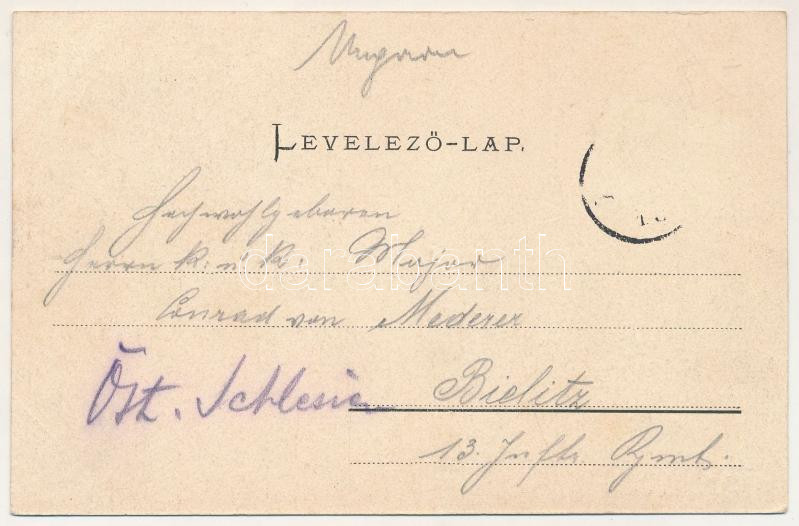 Ungarn
LEVELEZŐ-LAP.
Hochwohlgeboren
Herrn K: u: K: Major
Conrad von Mederer
Öst. Schlesien
Bielitz
13. Inftr Rgmt.
darabanth